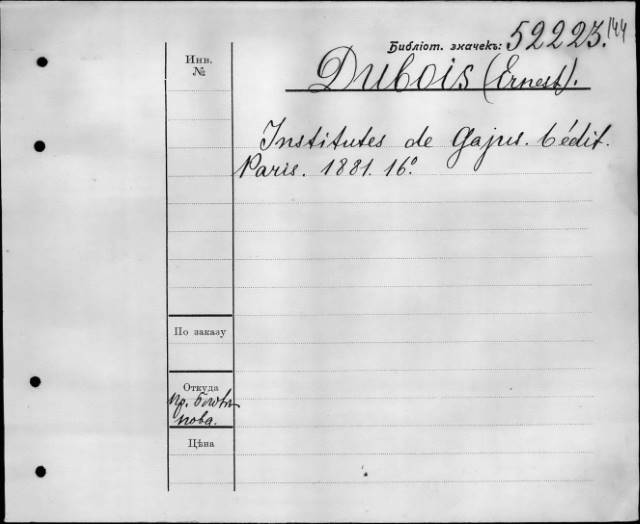 Библіот. значекъ: 52223./44
Инв.
№
Dubois (Ernest).
Institutes de Gajus. 6 édit.
Paris. 1881. 16º.
По заказу
Откуда
пр.
нова.
Цѣна